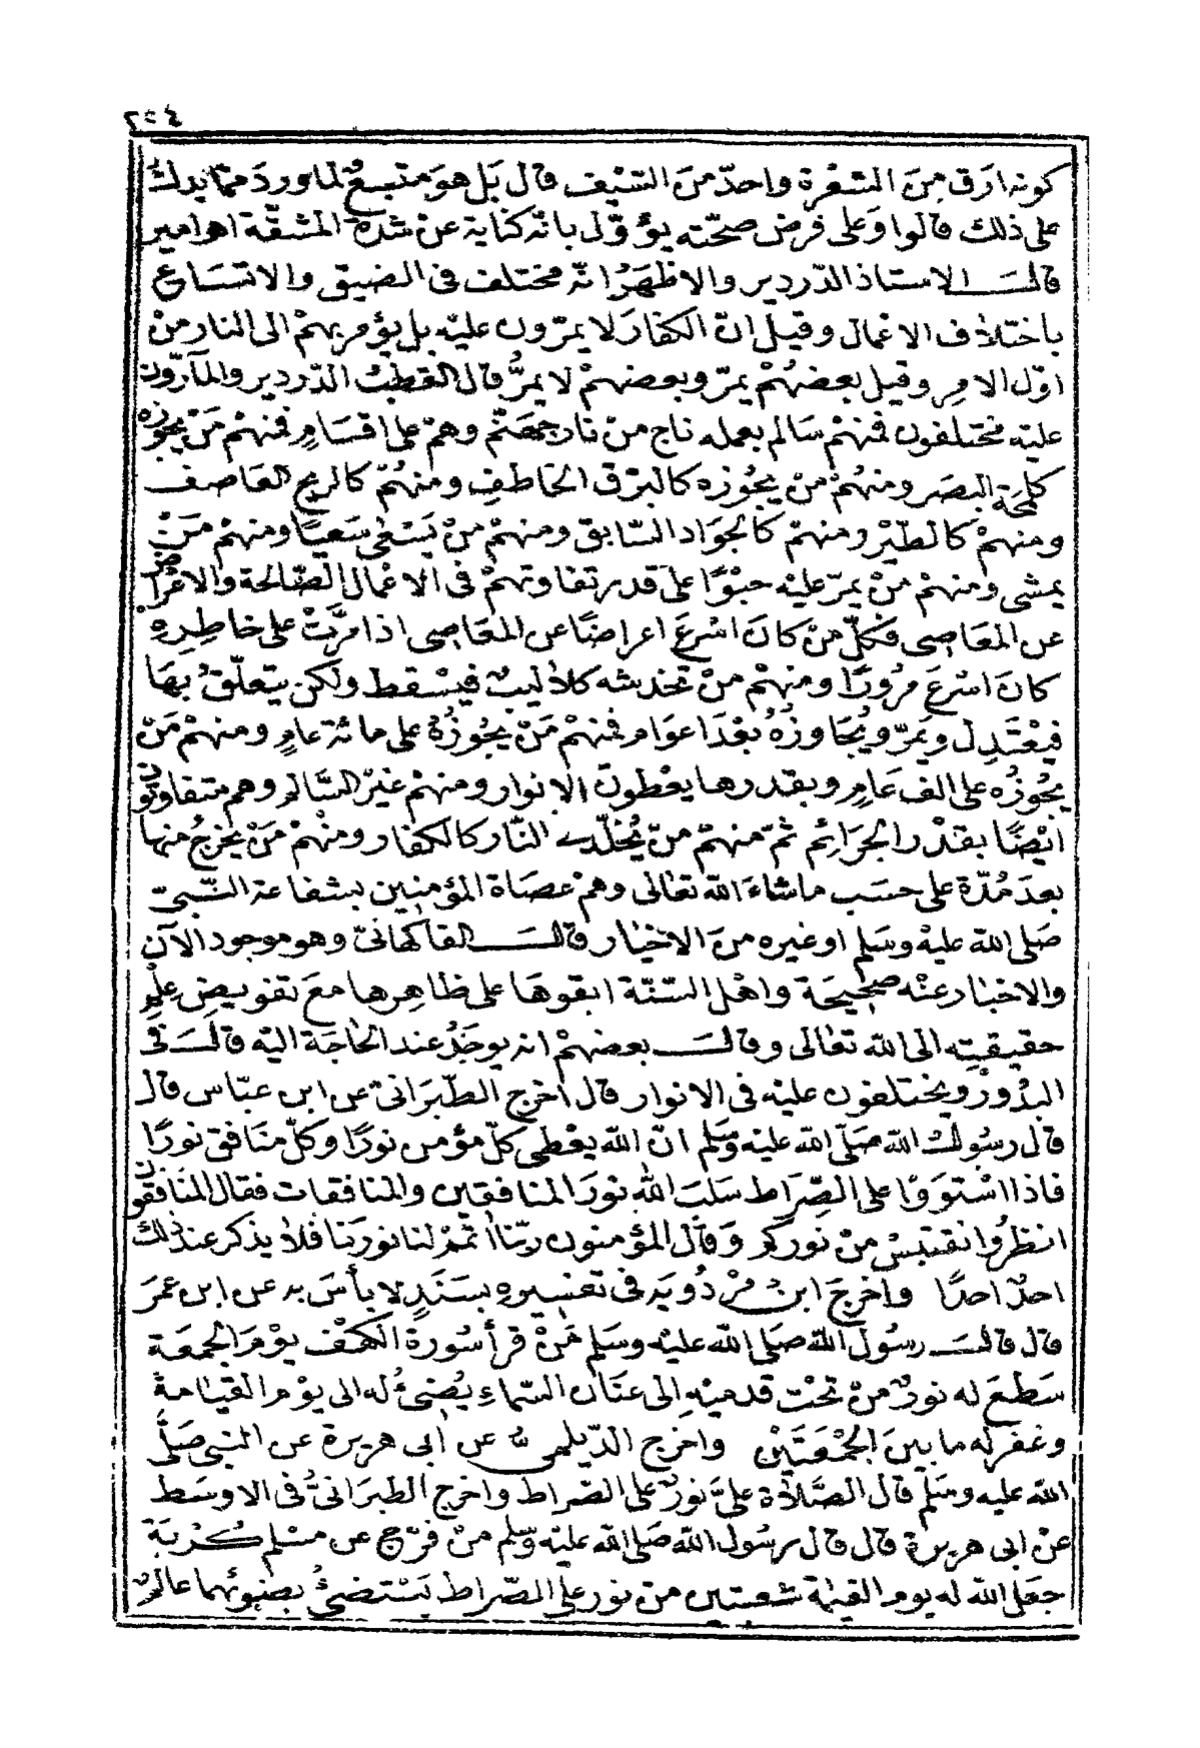 ٢٥٤
كونه ارَق مِنَ الشعْرة واحدّ منَ السَّيْف قال بَل هوَ متسِعٌ لما وردَ ممّا يدلّ
على ذلك قالوا وَعلى فرض صحّته يؤوّل بانّه كناية عنْ شدّة المشقّة اهوامير
قالَـــ الاستاذ الدّردير والاظهَرُ انّه مختلف فى الضيق والاتسَاع
باختلاف الاعْمال وقيلَ انّ الكفارَ لا يمرّون عليْه بل يؤمر بهمْ الى النار منْ
اوّل الامرِ وقيل بعضهُمْ يمرّ وبعضهمْ لا يمرُّ قال القطبُ الدّردير والمآرّون
عليْه مختلفون فمنهمْ سَالم بعمله ناج منْ نار جهَنّم وهمْ على اقسَامٍ فمنهمْ مَنْ يجوزه
كلمحَة البصَر ومنهُمْ منْ يجُوزه كالبَرْق الخاطفِ ومنهُمْ كالريح العَاصف
ومنهمْ كالطيْر ومنهمْ كالجوَاد السّابق ومنهمْ منْ يَسْعى سَعيًا ومنهمْ مَنْ
يمشى ومنهمْ منْ يمرّ عليْه حبْوًا علَى قدر تفاوتهمْ فى الاعْمال الصّالحة والاعْراض
عن المعَاصِى فكلّ منْ كانَ اسْرعَ اعراضًا عن المعَاصِى اذا مرَّتْ على خاطِرِهِ
كانَ اسْرعَ مرُورًا ومنهمْ منْ تخدشه كلاليبُ فيَسْقط ولكن يتعلّقُ بهَا
فيعْتَدِل ويَمرّ ويُجَاوزُهُ بعْدَ اعوَام فمنهمْ مَنْ يجُوزُهُ على مائة عامٍ ومنهمْ مَنْ
يجُوزُه على الف عَامٍ وبقدرها يعْطونَ الانوار ومنهمْ غيْر السَّالم وهم متفاوتون
ايْضًا بقدْر الجرَائم ثمّ منهمْ منْ يُخلّد فى النّار كالكفار ومنْهمْ مَنْ يخرجُ منها
بعدَ مُدّة على حسَب ماشَاءَ الله تعَالى وهمْ عصَاة المؤمنين بشفاعة النَّبىّ
صَلى الله عليْه وسَلم اوغيره منَ الاخيَار قالَـــ الفاكهانىّ وهو موجود الآن
والاخبار عنْه صحِيحَة واهْل السّنّة ابقوهَا على ظاهِرها معَ تفويضِ علْمِ
حقيقتِه الى الله تعَالى وقالَـــ بعضهمْ انه يوجَدُ عند الحَاجَة اليْه قالَـــ فى
البدُورْ ويختلفون عليْه فى الانوار قال اخرج الطّبَرَانىّ عن ابن عبّاس قالَ
قال رسُولُ الله صَلّى الله عليْه وسَلم انّ الله يعْطى كلّ مؤمن نورًا وكلّ منَافق نورًا
فاذا اسْتوَوْا على الصِّرَاط سَلبَ الله نورَ المنافقين والمنافقات فقال المنَافقون
انظرُوا نقتبِسْ منْ نوركم وَقالَ المؤمنون ربّنا اتممْ لنا نورَنا فلا يذكر عند ذلك
احدٌ احدًا واخرجَ ابن مرْدُويَه فى تفسِيرهِ بسَنَدٍ لا بأسَ به عن ابن عمَرَ
قال قالَـــ رسُولُ الله صَلى الله عليْه وسَلم مَنْ قرأ سُورة الكهْف يوْمَ الجمعَة
سَطعَ له نورٌ منْ تحْت قدميْهِ الى عنَان السّماءِ يُضىءُ له الى يوْمِ القيَامة
وغفر له ما بينَ الجمْعَتَيْن واخرج الدّيلمى عن ابى هريرة عن النبى صَلَّى
الله عليه وسَلم قال الصَّلاة علىَّ نورٌ على الصّراط واخرج الطبَرَانىُّ فى الاوسَط
عنْ ابى هريرة قال قال رسُول الله صَلى الله عليْه وسَلم منْ فرّج عن مسْلم كُرْبَة
جعَل الله له يوم القيٰمة شعبتين من نور على الصّراط يَسْتضىُٔ بضوئهما عالمٌ